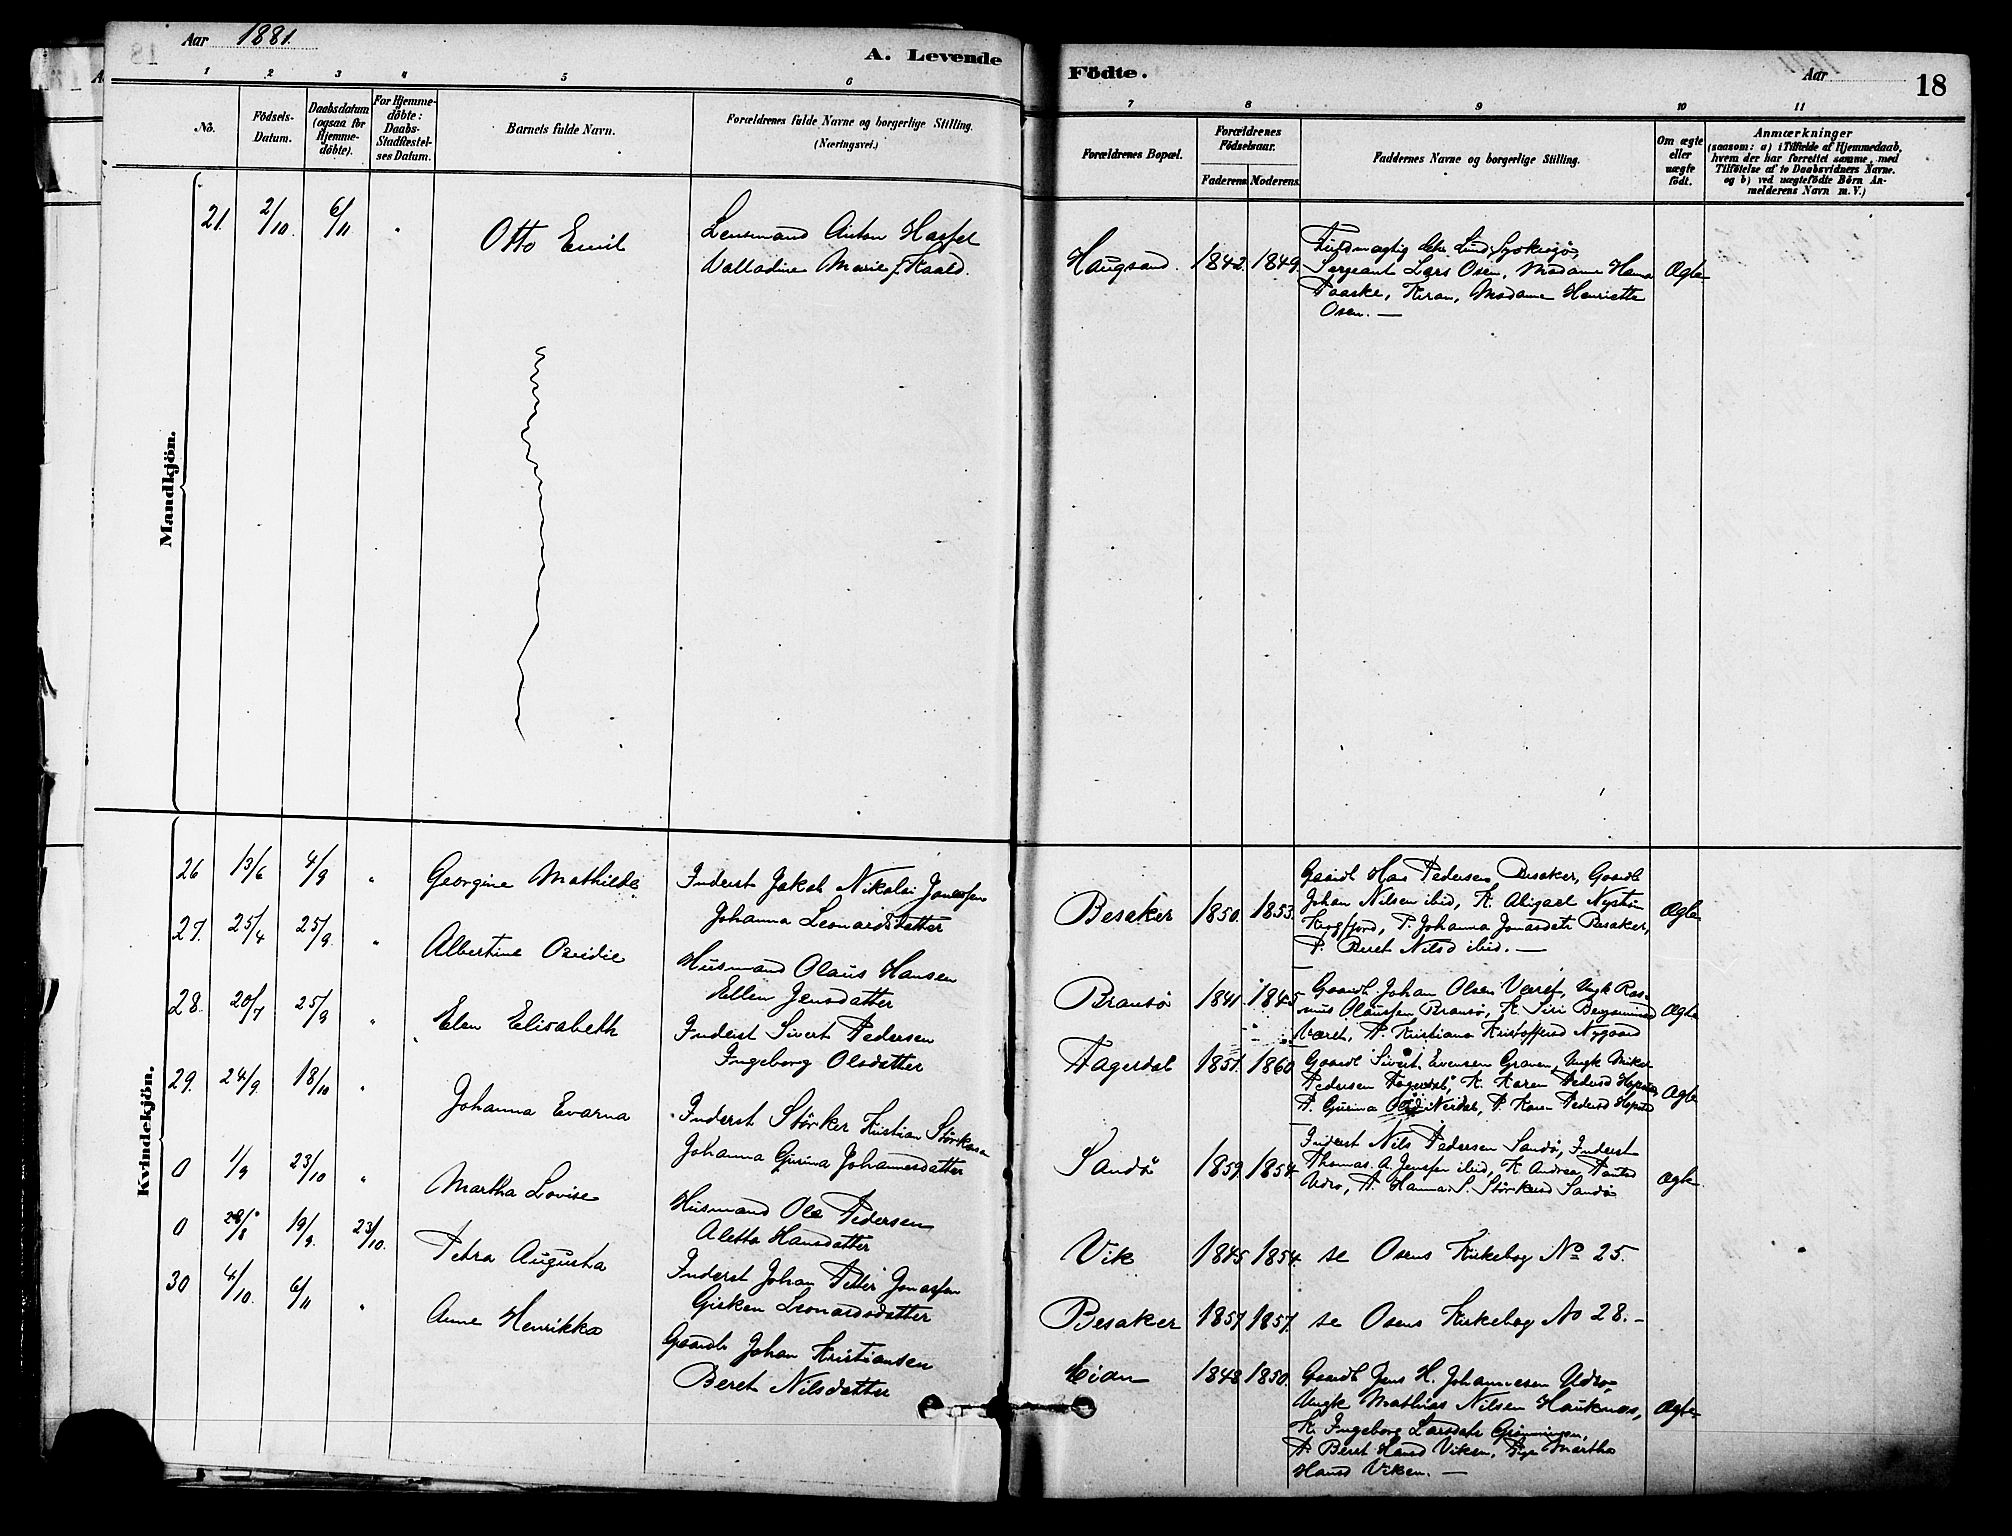 Aar 1881.
A. Levende
Födte.
Aar
18
1 2 3 4 5 6
7 8 9 10 11
No.
Födsels-
Datum.
Daabsdatum
(ogsaa for
Hjemme-
döbte).
For Hjemme-
döbte:
Daabs-
Stadfæstel-
ses Datum.
Barnets fulde Navn.
Forældrenes fulde Navne og borgerlige Stilling.
(Næringsvei.)
Forældrenes Bopæl.
Forældrenes
Födselsaar.
Faderens Moderens
Faddernes Navne og borgerlige Stilling.
Om ægte
eller
uægte
födt.
Anmærkninger
(saasom: a) i Tilfælde af Hjemmedaab,
hvem der har forrettet samme, med
Tilföielse af to Daabsvidners Navne.
og b) ved uægtefödte Börn An-
melderens Navn m.V.)
Mandkjön.
21. 2/10. 6/11 "
Otto Emil
Lensmand Anton Hassel
Valladine Marie f. Kaald.
Haugsand. 1842. 1849.
Sergeant Lars Osen, Madame Hanna
Paaske, Kiran, Madame Henriette
Osen. —
Ægte
Kvindekjön.
26 13/6 4/9 "
Georgine Mathilde
Inderst Jakob Nikolai Jonassen
Johanna Leonardsdatter
Besaker 1850. 1853.
Gaardb Hans Pedersen Besaker, Gaardb
Johan Nilsen ibid, K. Abigael Nystøn
Krogfjord, P. Johanna Jonasdatr Besaker,
P. Beret Nilsd ibid. —
Ægte
27. 25/4 25/9. "
Albertine Ovidie
Husmand Olaus Hansen
Ellen Jensdatter
Bransø 1841. 1845
Gaardb. Johan Olsen Været, Ungk Ras-
mus Olaussen Bransø, K. Siri Benjaminsd
Været, P. Kristiana Kristoffersd Nygaard
Ægte
28. 20/7 25/9 "
Elen Elisabeth
Inderst Sivert Pedersen
Ingeborg Olsdatter
Fagerdal 1851. 1860
Gaardb Sivert Evensen Graven, Ungk Mikal
Pedersen Fagerdal, K. Karen Pedersd
P. Gurina Nerdal, P. Karen Pedersd
Ægte
29. 24/9. 18/10 "
Johanna Evarna
Inderst Størker Kristian Størkersen
Johanna Gurina Johannesdatter
Sandø 1859. 1854.
Inderst Nils Pedersen Sandø, Inderst
Thomas A. Jenssen ibid, K. Andrea
Udro, P. Hanna S. Størkersd Sandø
Ægte
0 1/9 23/10 "
Martha Lovise
Husmand Ole Pedersen
Aletta Hansdatter
Vik 1845 1854. se Osens Kirkebog No 25.
0 28/8 19/9. 23/10.
Petra Augusta
Inderst Johan Petter Jonassen
Gisken Leonardsdatter
Besaker 1857 1857. se Osens Kirkebog No 28. -
30 4/10. 6/11 "
Anne Henrikka
Gaardb Johan Kristiansen
Beret Nilsdatter
Eian 1848 1850.
Gaardb Jens H. Johannesen Udro,
Ungk Mathias Nilsen Hauknes,
K. Ingeborg Larsdatr Grønningen,
P. Beret Hansd Viken, Pige Martha
Hansd Viken. —
Ægte